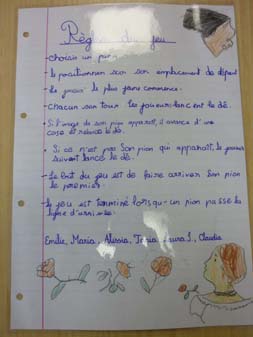 Règles du jeu
- Choisir un pion
- le positionner sur son emplacement de départ
- Le joueur le plus jeune commence.
- Chacun son tour les joueurs lancent le dé.
- Si l'image de son pion apparaît, il avance d'une
case et relance le dé.
- Si ce n'est pas son pion qui apparaît, le joueur
suivant lance le dé.
- Le but du jeu est de faire arriver son pion
le premier.
- Le jeu est terminé lorsqu'un pion passe la
ligne d'arrivée.
Emilie, Maria, Alessia, Tania, Laura S., Claudia